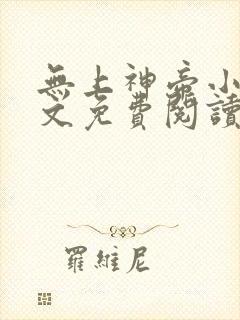 無上神帝小
文免費閱讀
羅維尼